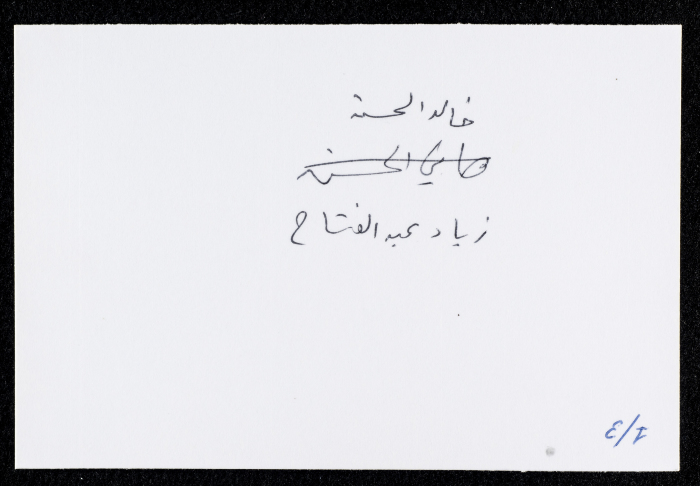 خالد الحسن
هاني الحسن
زياد عبد الفتاح
1/3